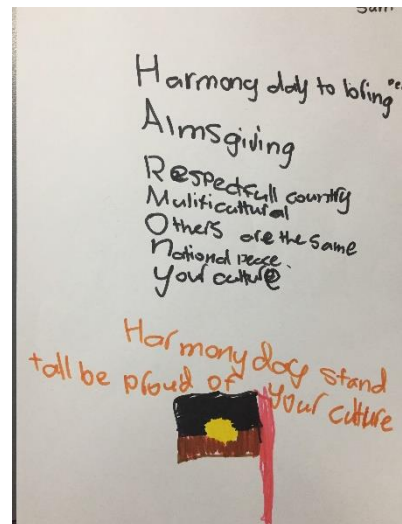 Sam
Harmony day to bring
Almsgiving
Respectfull country
Multicultural
Others are the same
National peace.
Your culture
Harmony day stand
tall be proud of your culture